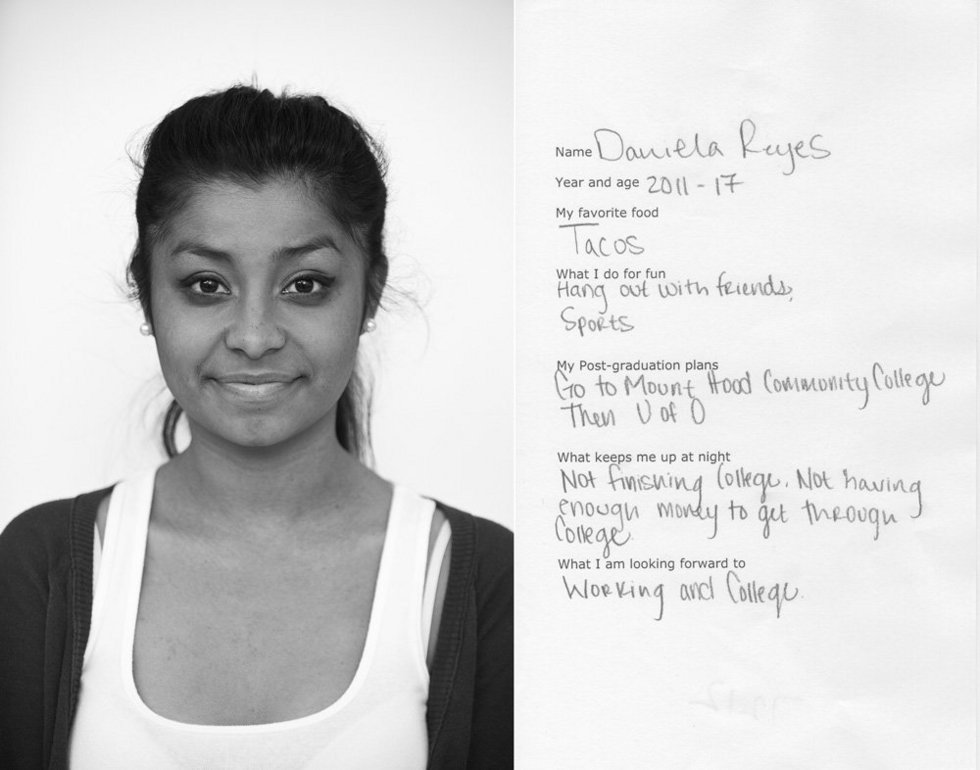 Name Daniela Reyes
Year and age 2011 - 17
My favorite food
Tacos
What I do for fun
Hang out with friends,
Sports
My Post-graduation plans
Go to Mount Hood Community College
Then U of O
What keeps me up at night
Not finishing College. Not having
enough money to get through
College.
What I am looking forward to
Working and College.